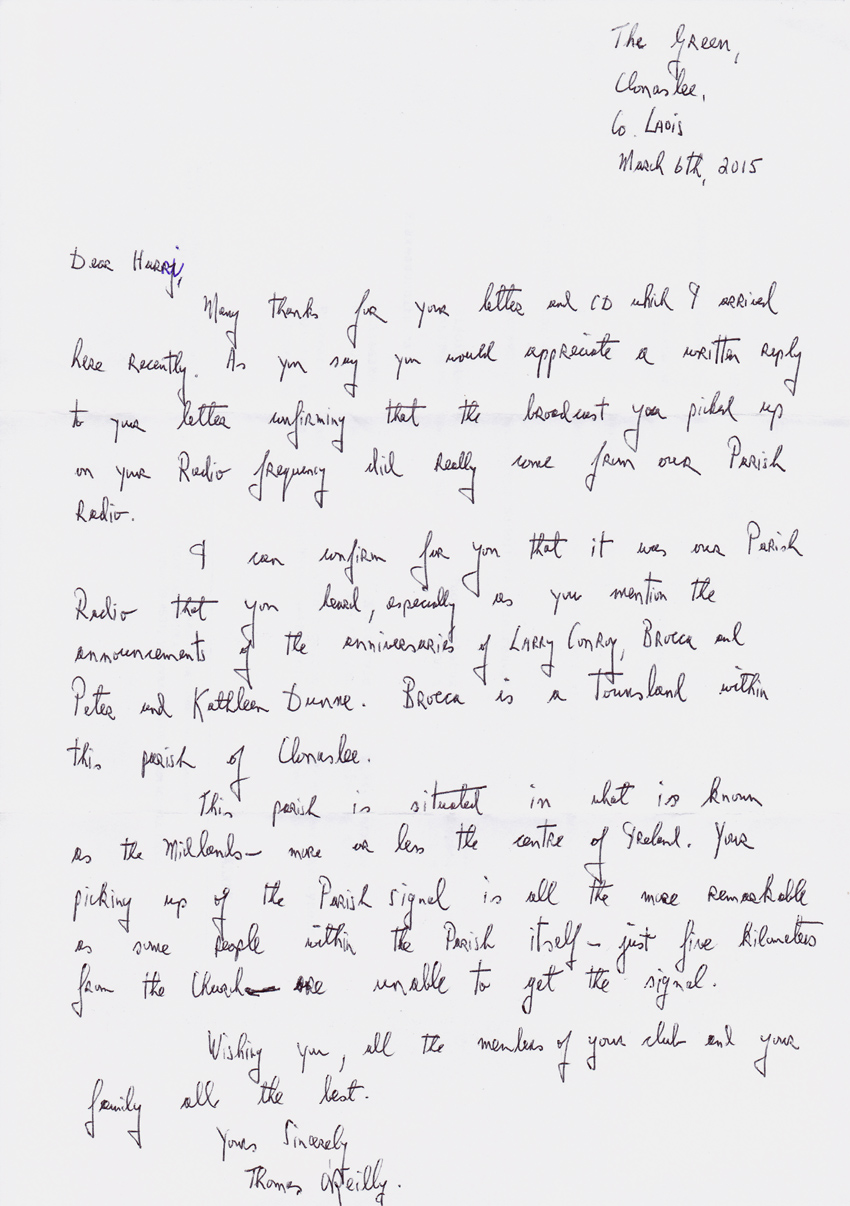 The Green,
Clonaslee,
Co. Laois
March 6th, 2015
Dear Harri,
Many thanks for your letter and CD which I arrived
here recently. As you say you would appreciate a written reply
to your letter confirming that the broadcast you picked up
on your Radio frequency did really come from our Parish
Radio.
I can confirm for you that it was our Parish
Radio that you heard, especially as you mention the
announcements of the anniversaries of Larry Conroy, Brocca and
Peter and Kathleen Dunne. Brocca is a Townsland within
this parish of Clonaslee.
This parish is situated in what is known
as the Midlands – more or less the centre of Ireland. Your
picking up of the Parish signal is all the more remarkable
as some people within the Parish itself – just five kilometers
from the Church – are unable to get the signal.
Wishing you, all the members of your club and your
family all the best.
Yours Sincerely
Thomas O'Reilly.